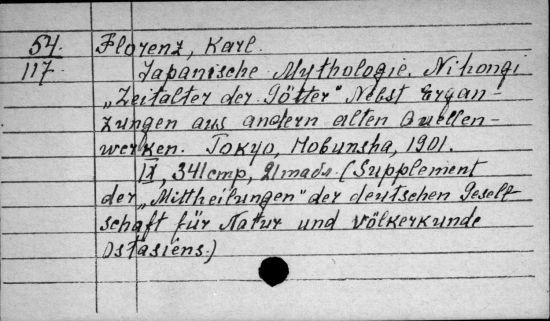 54.
117.
Florenz, Karl.
Japanische Mythologie. Nihongi
„Zeitalter der Götter“ Nebst Ergän-
zungen aus andern alten Quellen-
werken. Tokyo, Hobunsha, 1901.
IX, 341 cmp,
(Supplement
der „Mittheilungen“ der deutschen Gesell-
schaft für Natur und Völkerkunde
Ostasiens.)